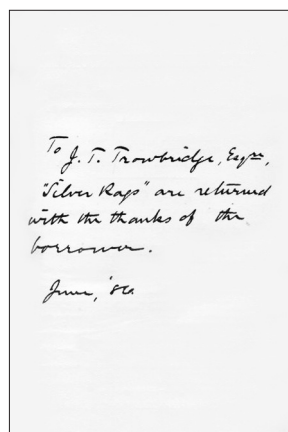 To J. T. Trowbridge, Esqre,
"Silver Rags" are returned
with the thanks of the
borrower.
June, '86.